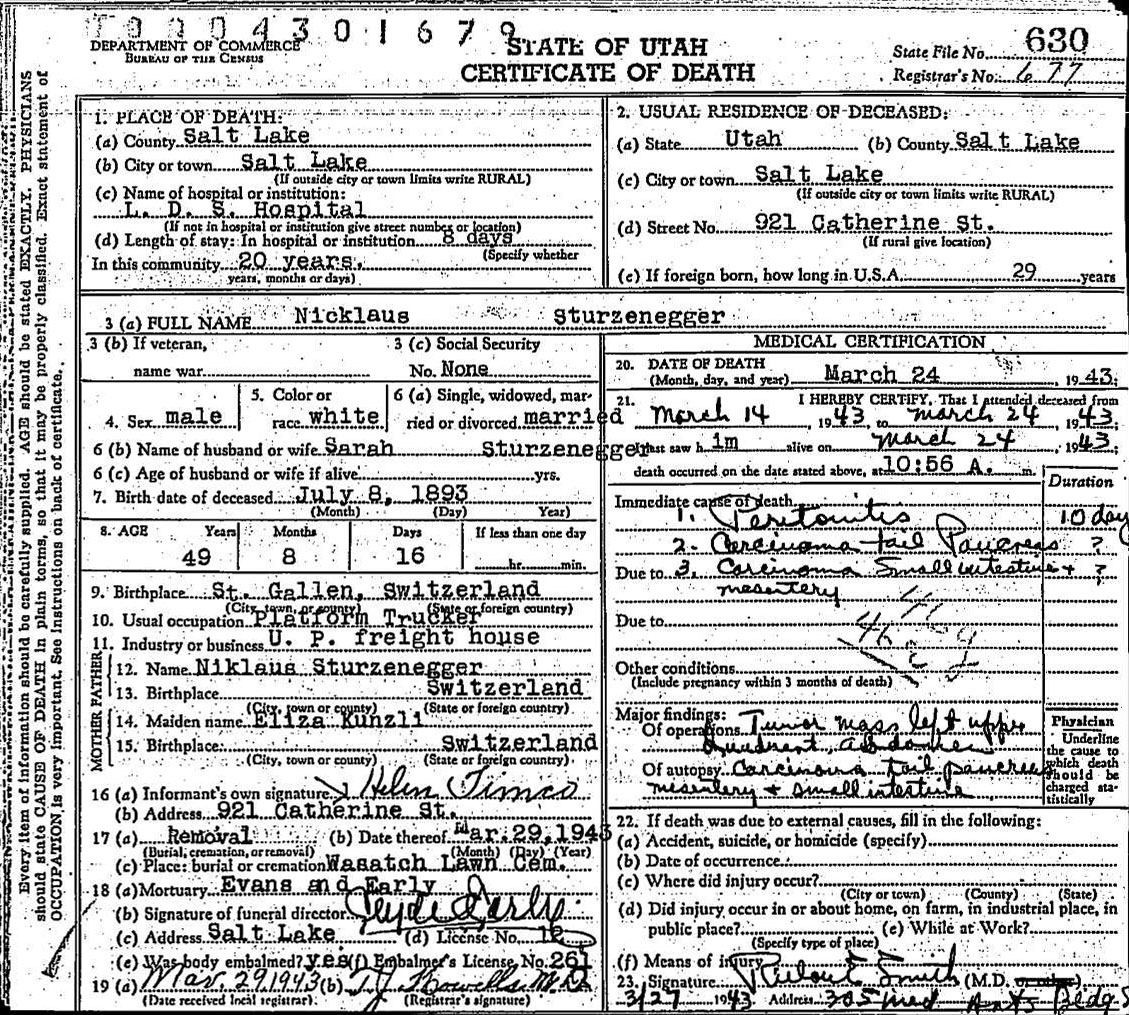 T 0 0 0 4 3 0 1 6 7 9
DEPARTMENT OF COMMERCE
BUREAU OF THE CENSUS
STATE OF UTAH
CERTIFICATE OF DEATH
State File No. 630
Registrar's No. 677
Every item of information should be carefully supplied. AGE should be stated EXACTLY. PHYSICIANS
should state CAUSE OF DEATH in plain terms, so that it may be properly classified. Exact statement of
OCCUPATION is very important. See instructions on back of certificate.
1. PLACE OF DEATH:
(a) County Salt Lake
(b) City or town Salt Lake
(If outside city or town limits write RURAL)
(c) Name of hospital or institution:
L. D. S. Hospital
(If not in hospital or institution give street number or location)
(d) Length of stay: In hospital or institution 8 days
(Specify whether
In this community 20 years.
years, months or days)
2. USUAL RESIDENCE OF DECEASED:
(a) State Utah (b) County Salt Lake
(c) City or town Salt Lake
(If outside city or town limits write RURAL)
(d) Street No. 921 Catherine St.
(If rural give location)
(e) If foreign born, how long in U.S.A. 29 years
3 (a) FULL NAME Nicklaus Sturzenegger
3 (b) If veteran, 3 (c) Social Security
name war No. None
4. Sex male 5. Color or race white 6 (a) Single, widowed, married or divorced married
6 (b) Name of husband or wife Sarah Sturzenegger
6 (c) Age of husband or wife if alive yrs.
7. Birth date of deceased July 8, 1893
(Month) (Day) Year)
8. AGE Years Months Days If less than one day
49 8 16 hr. min.
9. Birthplace St. Gallen, Switzerland
(City, town, or county) (State or foreign country)
10. Usual occupation Platform Trucker
11. Industry or business U. P. freight house
FATHER
12. Name Niklaus Sturzenegger
13. Birthplace Switzerland
(City, town or county) (State or foreign country)
MOTHER
14. Maiden name Eliza Kunzli
15. Birthplace: Switzerland
(City, town or county) (State or foreign country)
16 (a) Informant's own signature Helen Timco
(b) Address 921 Catherine St.
17 (a) Removal (b) Date thereof Mar. 29, 1943
(Burial, cremation, or removal) (Month) (Day) (Year)
(c) Place: burial or cremation Wasatch Lawn Cem.
18 (a) Mortuary Evans and Early
(b) Signature of funeral director Clyde Early
(c) Address Salt Lake (d) License No. 12
(e) Was body embalmed? yes (f) Embalmer's License No. 261
19 (a) Mar. 29 1943 (b) T. J. Howells M.D.
(Date received local registrar) (Registrar's signature)
MEDICAL CERTIFICATION
20. DATE OF DEATH
(Month, day, and year) March 24, 1943;
21. I HEREBY CERTIFY, That I attended deceased from
March 14 1943, to March 24, 1943;
I last saw him alive on March 24 1943;
death occurred on the date stated above, at 10:56 A. m.
Duration
Immediate cause of death
1. Peritonitis 10 day
2. Carcinoma tail Pancreas ?
Due to 3. Carcinoma Small intestine + ?
mesentery
Due to
46 g
Other conditions
(Include pregnancy within 3 months of death)
Major findings:
Of operations Tumor mass left upper
Quadrant, abdomen
Of autopsy Carcinoma tail pancreas
mesentery + small intestine
Physician
Underline
the cause to
which death
should be
charged sta-
tistically
22. If death was due to external causes, fill in the following:
(a) Accident, suicide, or homicide (specify)
(b) Date of occurrence
(c) Where did injury occur?
(City or town) (County) (State)
(d) Did injury occur in or about home, on farm, in industrial place, in
public place? (e) While at Work?
(Specify type of place)
(f) Means of injury
23. Signature Smith (M.D.
3/27 1943 Address 305 Med Arts Bldg S